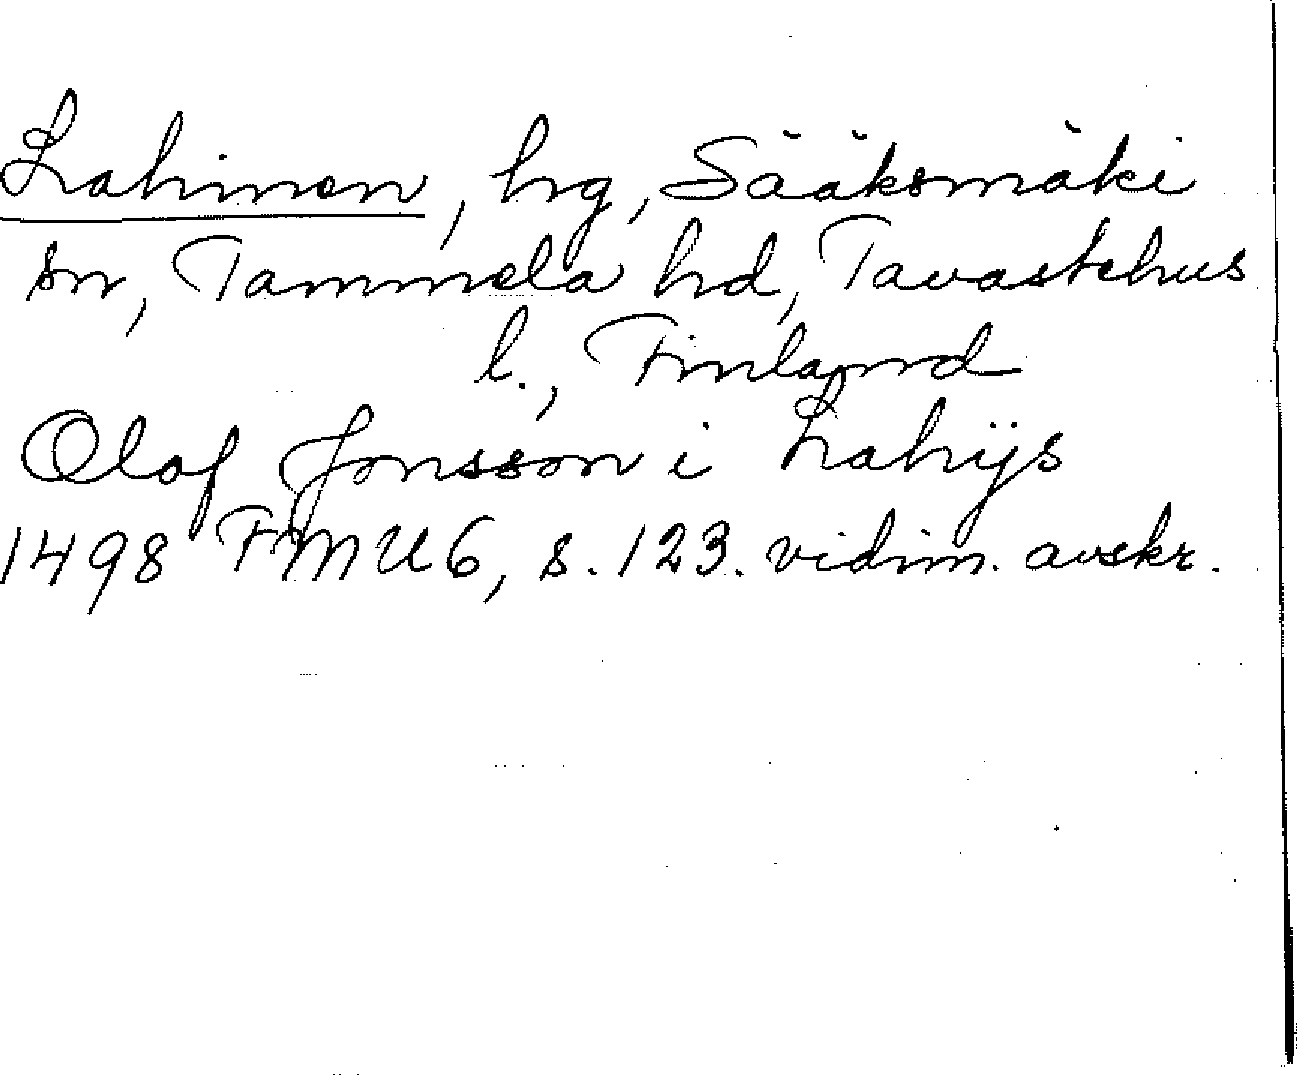 Lahinen, hg, Sääksmäki
sn, Tammela hd, Tavastehus
l., Finland
Olof Jonsson i Lahijs
1498 FMU 6, s. 123. vidim. avskr.